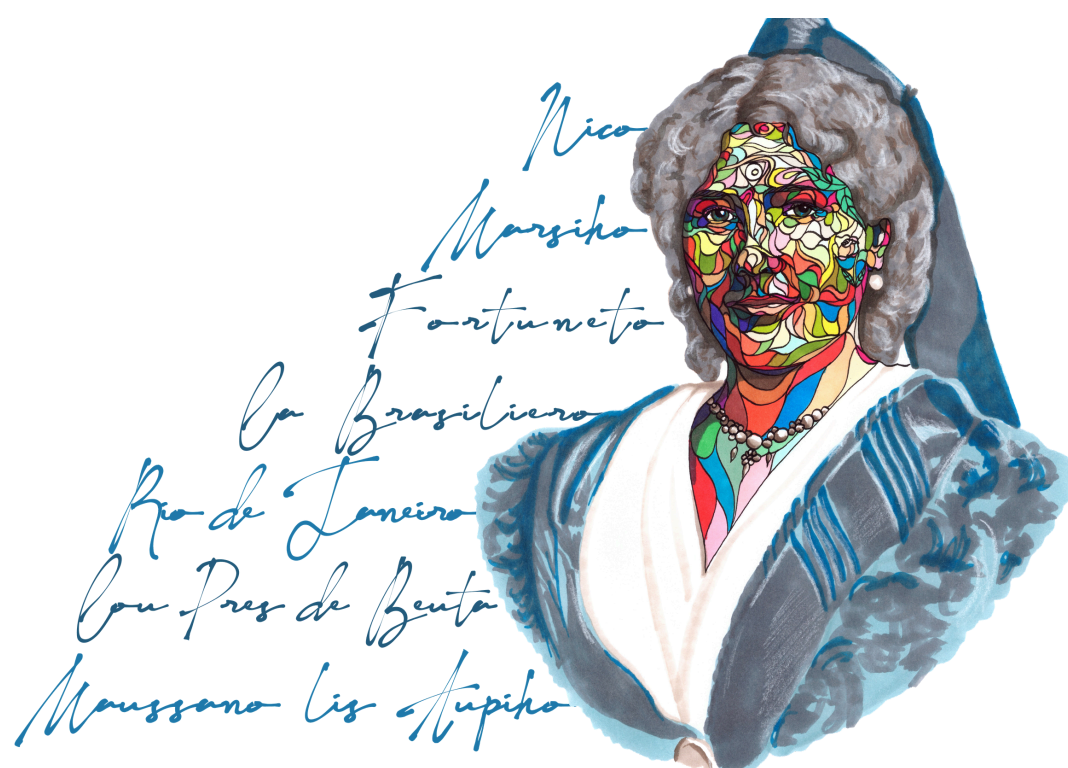 Nico
Marsiho
Fortuneto
La Brasiliero
Rio de Janeiro
Lou Pres de Beuta
Maussano lis Aupiho